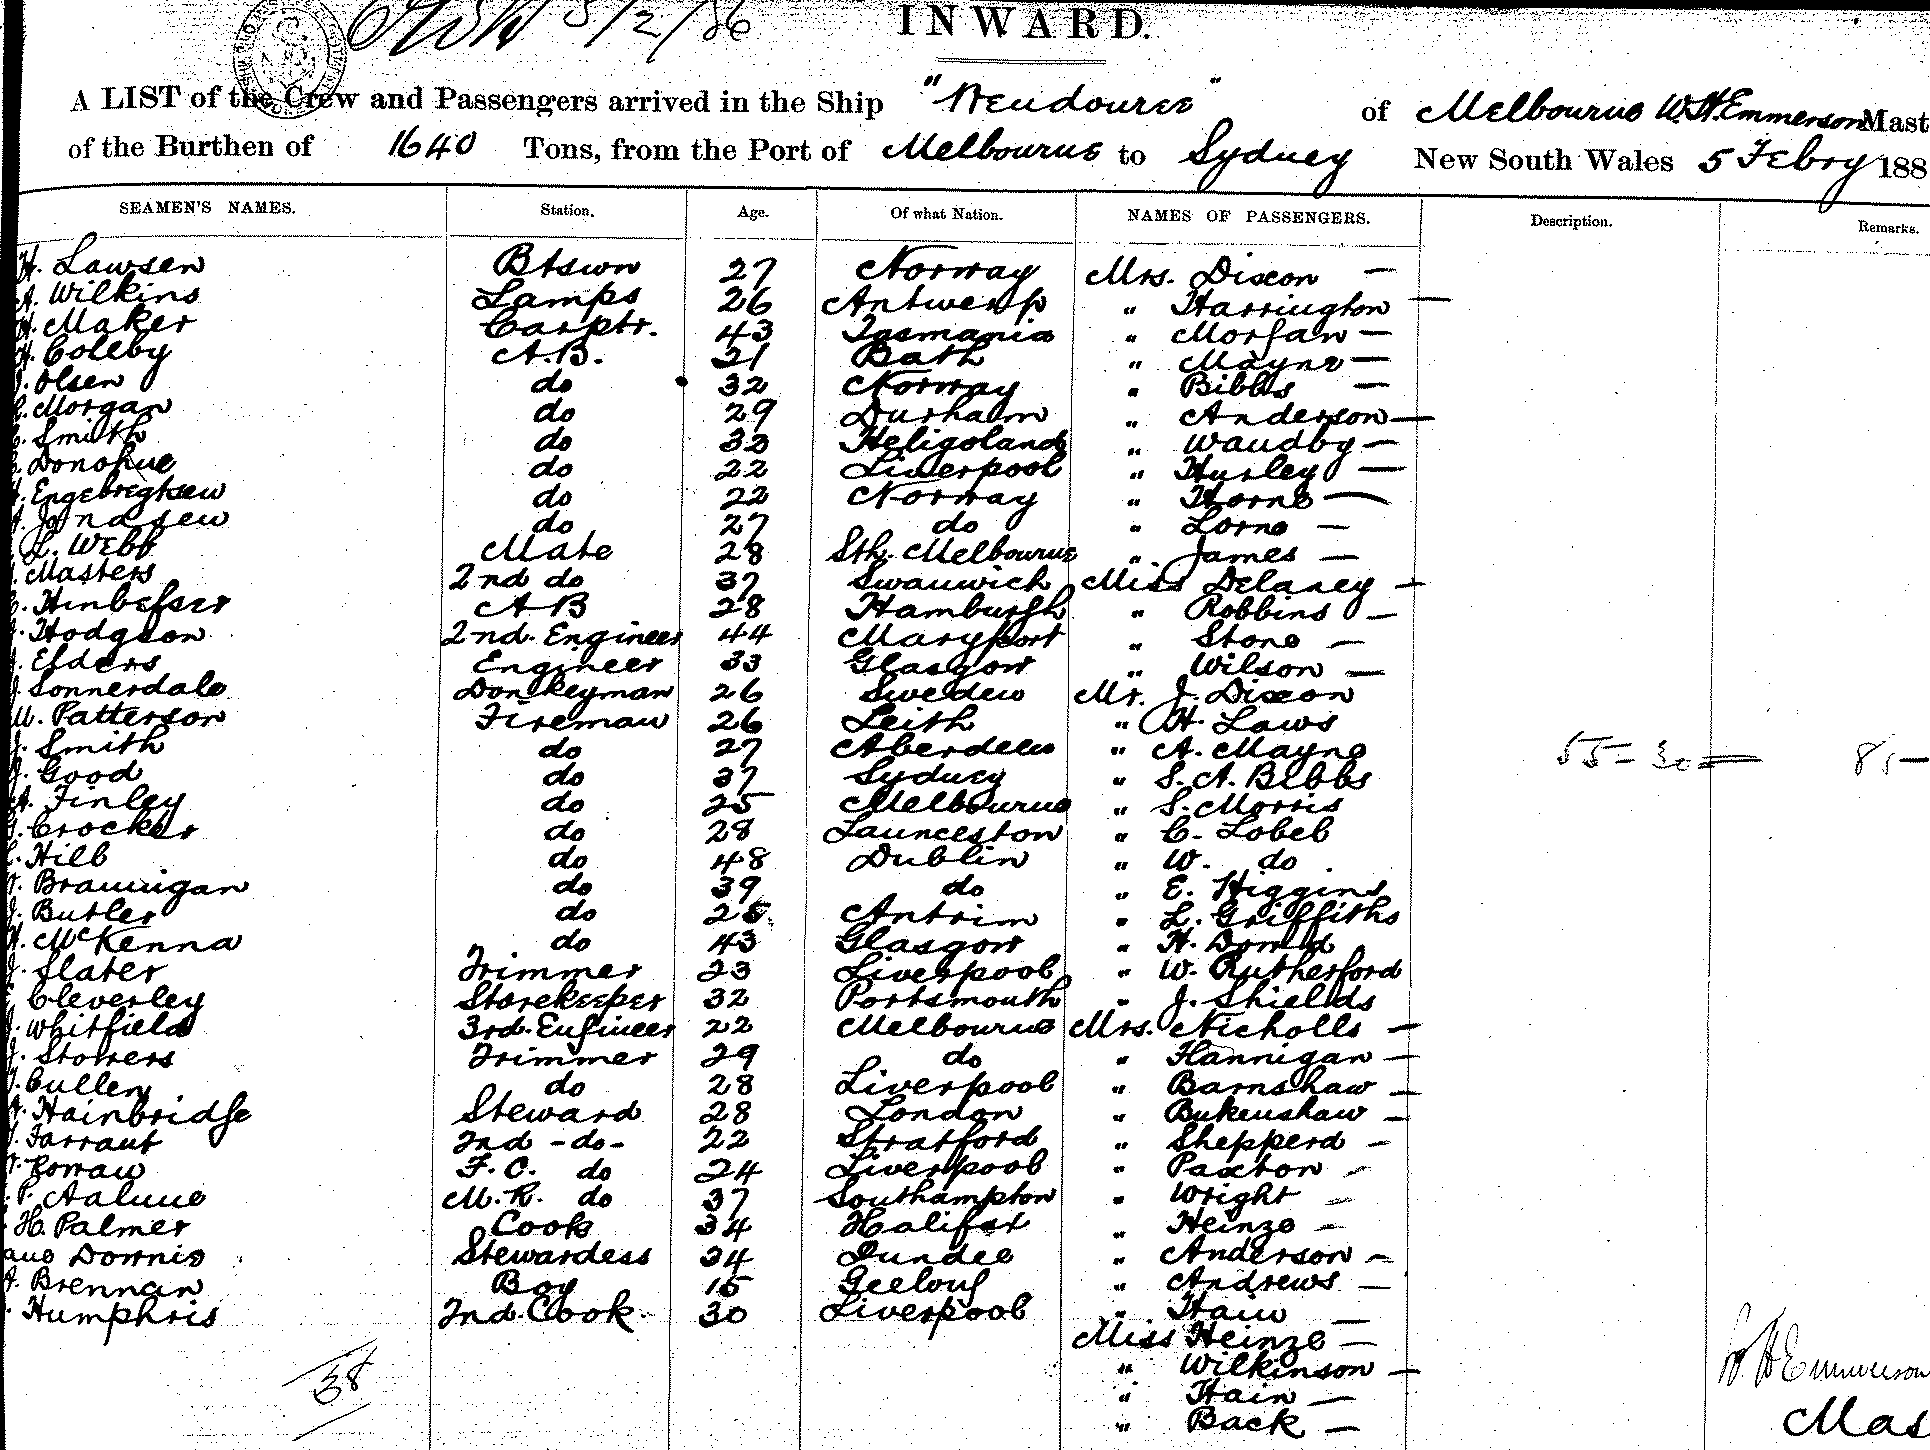 5/2/86
INWARD.
A LIST of the Crew and Passengers arrived in the Ship "Wendouree" of Melbourne W.H. Emmerson Mast
of the Burthen of 1640 Tons, from the Port of Melbourne to Sydney New South Wales 5 Febry 188
SEAMEN'S NAMES. Station. Age. Of what Nation. NAMES OF PASSENGERS. Description. Remarks.
H. Lawsen Btswn 27 Norway Mrs. Dixon —
A. Wilkins Lamps 26 Antwerp " Harrington —
H. Maker Carptr. 43 Tasmania " Morgan —
H. Coleby A.B. 21 Bath " Mayne —
Olsen do 32 Norway " Bibbs —
Morgan do 29 Durham " Anderson —
Smith do 33 Heligoland " Waudby —
Donohue do 22 Liverpool " Hurley —
Engebregtsen do 22 Norway " Thorne —
do 27 do " Lorne —
L. Webb Mate 28 Sth. Melbourne " James —
Masters 2nd do 37 Swanwich Miss Delaney —
A B 28 Hamburgh " Robbins —
Hodgson 2nd. Engineer 44 Maryport " Stone —
Elders Engineer 33 Glasgow " Wilson —
J. Sonnerdale Donkeyman 26 Sweden Mr. J. Dixon
M. Patterson Fireman 26 Leith " H. Laws
J. Smith do 27 Aberdeen " A. Mayne
J. Good do 37 Sydney " S. A. Bibbs 55 - 30 = 85 —
A. Finley do 25 Melbourne " S. Morris
Crocker do 28 Launceston " C. Lobel
Hill do 48 Dublin " W. do
Brannigan do 39 do " E. Higgins
J. Butler do 25 Antrim " L. Griffiths
McKenna do 43 Glasgow " H.
J. Slater Trimmer 23 Liverpool " W. Rutherford
Cleverley Storekeeper 32 Portsmouth " J. Shields
J. Whitfield 3rd. Engineer 22 Melbourne Mrs. Nicholls —
J. Stowers Trimmer 29 do " Hannigan —
Cullen do 28 Liverpool " Barnshaw —
Hainbridge Steward 28 London " Bukenshaw —
Farrant 2nd - do - 22 Stratford " Shepperd —
Cowan F. C. do 24 Liverpool " Paxton —
M. R. do 37 Southampton " Wright —
H. Palmer Cook 34 Halifax " Heinze —
Downie Stewardess 34 Dundee " Anderson —
A. Brennan Boy 15 Geelong " Andrews —
Humphris 2nd. Cook. 30 Liverpool " Hain —
Miss Heinze —
38 " Wilkinson — W. H. Emmerson
" Hain —
" Back — Mas